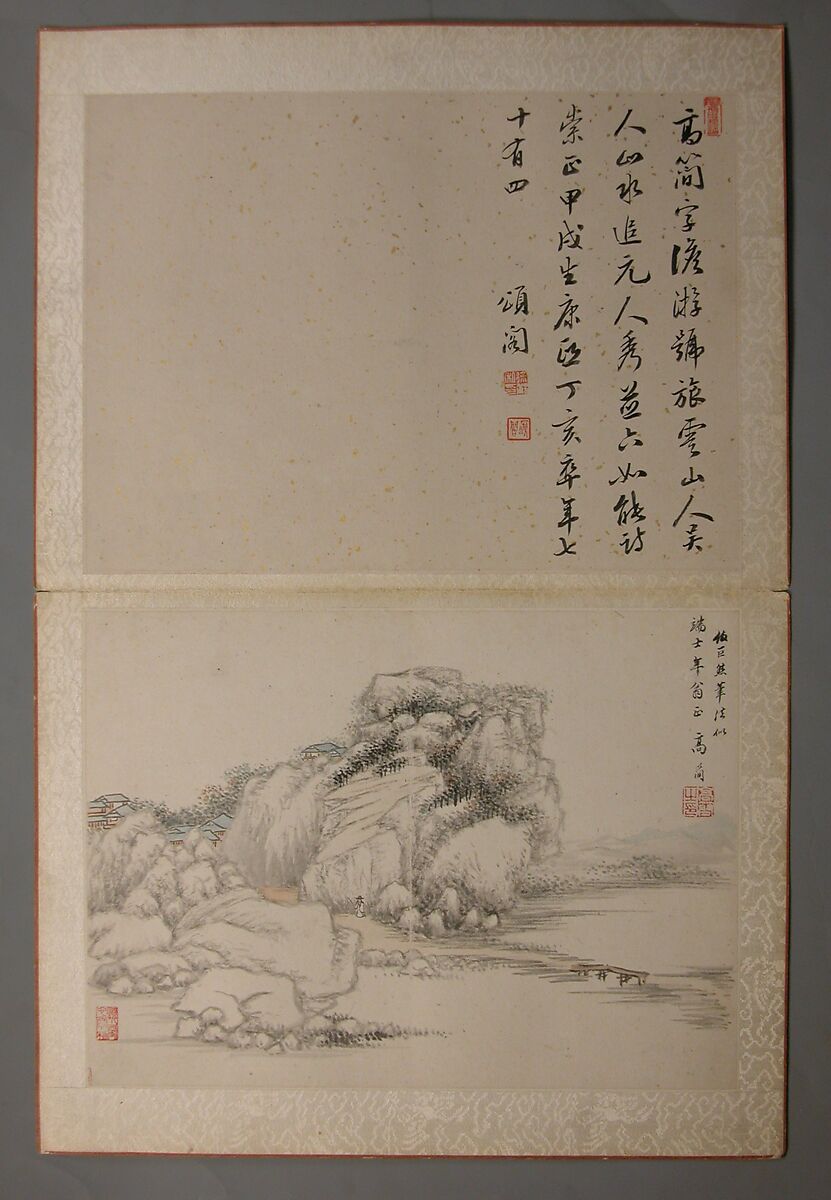 高簡字澹游號旅雲山人吳
人山水追元人秀並六如能詩
崇正甲戌生康熙丁亥卒年七
十有四
頌閣
倣巨然筆法似
端士年翁正 高簡